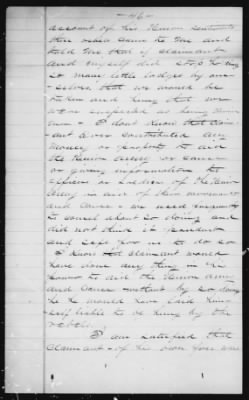 -46-
account of his Union sentiments
then raid came to me and
told me that if claimant
and myself did not stop
so many little lodges by our-
-selves, that we would be
taken and hung that we
were suspected as being Union
men - I don't know that claim-
ant ever contributed any
money or property to aid
the Union army or cause
or giving information to
officers or soldiers of the Union
Army in aid of their movements
and cause - we used frequently
to counsel about so doing and
did not think it prudent
and safe for us to do so
I know that claimant would
have done any thing in his
power to aid the Union army
and cause without by so doing
he would have laid him-
self liable to be hung by the
rebels
I am satisfied that
claimant of his own free will